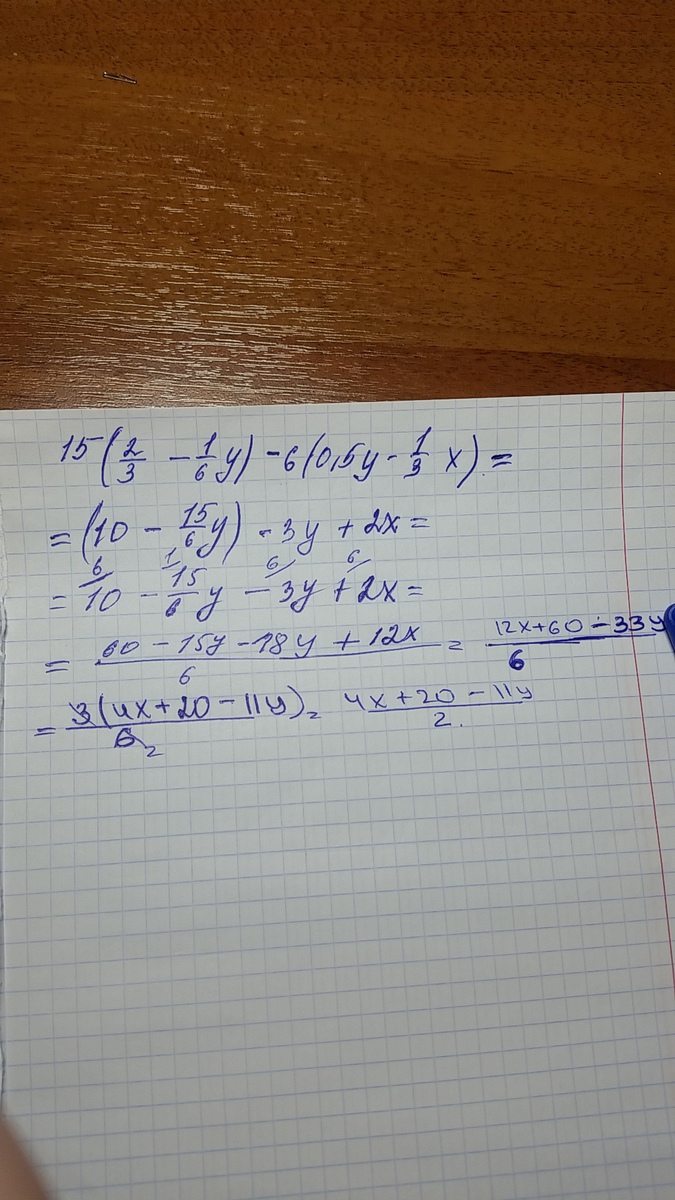 15(2/3 - 1/6 y) - 6(0,5y - 1/3 x) =
= (10 - 15/6 y) - 3y + 2x =
= 10 6/ - 15/6 y 1/ - 3y 6/ + 2x 6/ =
= (60 - 15y - 18y + 12x)/6 = (12x + 60 - 33y)/6
= 3(4x + 20 - 11y)/6 2 = (4x + 20 - 11y)/2.